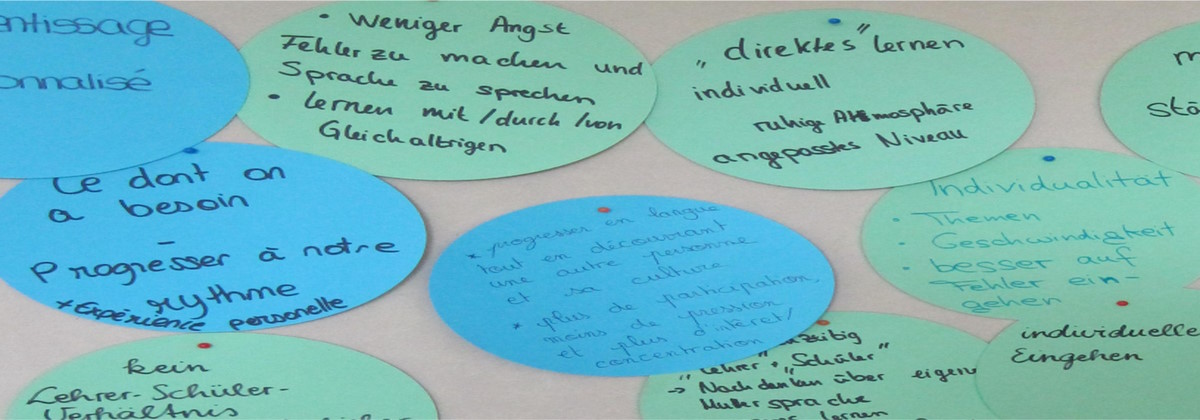 ntissage
onnalisé
• Weniger Angst
Fehler zu machen und
Sprache zu sprechen
• lernen mit /durch /von
Gleichaltrigen
„direktes" lernen
individuell
ruhige Atmosphäre
angepasstes Niveau
Stä
Ce dont on
a besoin
–
Progresser à notre
rythme
* Expérience personelle
* progresser en langue
tout en découvrant
une autre personne
et sa culture
* plus de participation,
moins de pression
et plus d'intéret/
concentration
Individualität
• Themen
• Geschwindigkeit
• besser auf
Fehler ein-
gehen
kein
Lehrer-Schüler-
Verhältnis
"Lehrer" + "Schüler"
→ Nachdenken über eigene
Muttersprache
lernen
individuelle
Eingehen